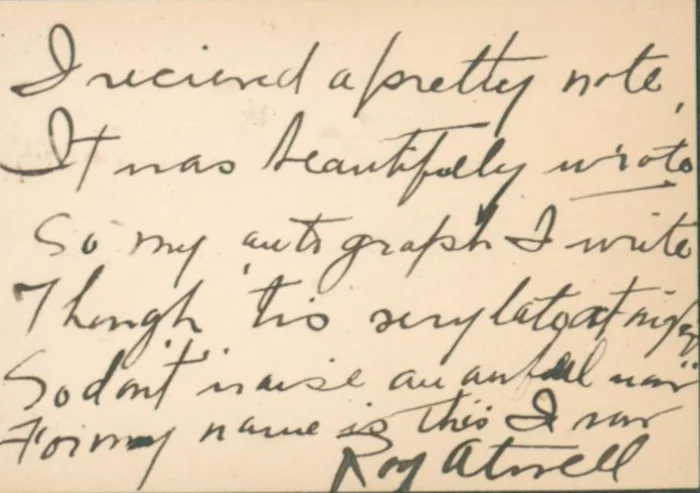 I recieved a pretty note,
It was beautifully wrote
So my autograph I write
Though 'tis very late at night
So don't raise an awful row
For my name is this I vow
Roy Atwell